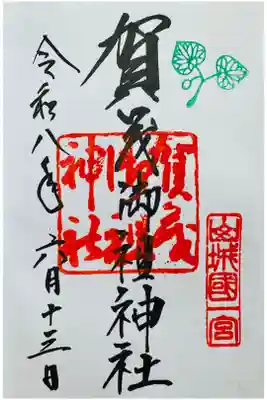 山城國一宮
賀茂御祖神社
賀茂御祖神社
令和八年六月十三日